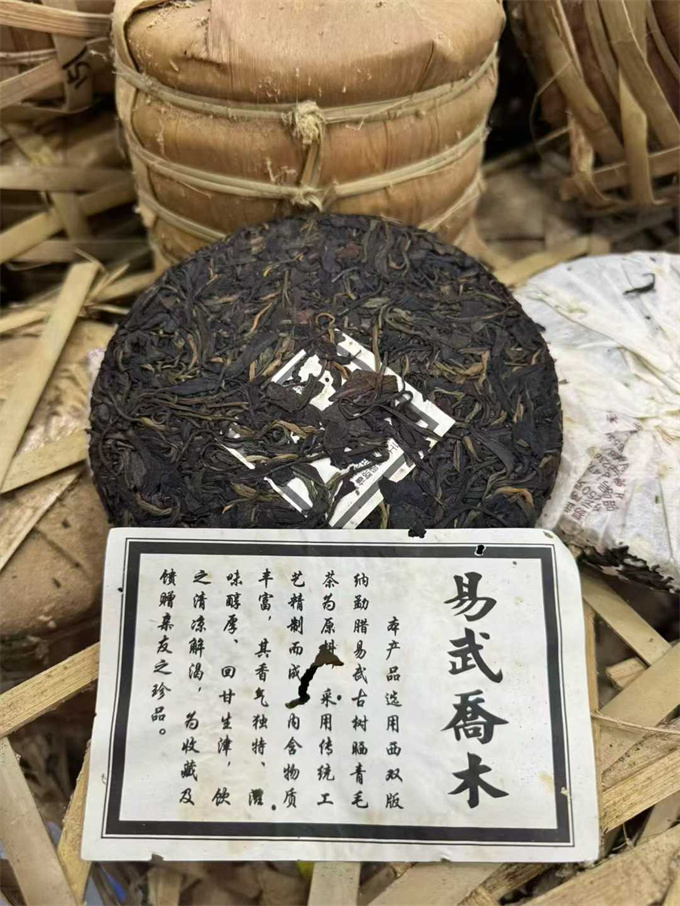 易武喬木
本产品选用西双版
纳勐腊易武古树晒青毛
茶为原料。采用传统工
艺精制而成 内含物质
丰富，其香气独特、滋
味醇厚、回甘生津，饮
之清凉解渴，为收藏及
馈赠亲友之珍品。